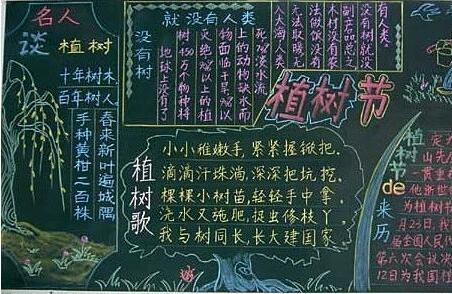 名人
谈植树
十年树木
百年树人
手种黄柑二百株
春来新叶遍城隅
就没有人类
没有树
地球上没有了
树450万个物种将
灭绝90%以上的植
物面临干旱90%以
上的动物缺水而
死90%淡水流
入大海人类
无法取暖无
法做饭没有
木材没有农
副产品总之
没有树就没
有人类。
植树节
植树歌
小小稚嫩手,紧紧握锨把,
滴滴汗珠淌,深深把坑挖,
棵棵小树苗,轻轻手中拿,
浇水又施肥,捉虫修枝丫,
我与树同长,长大建国家
植树节
de
来历
为植树节
届全国人民代
第六次会议决
12日为我国植